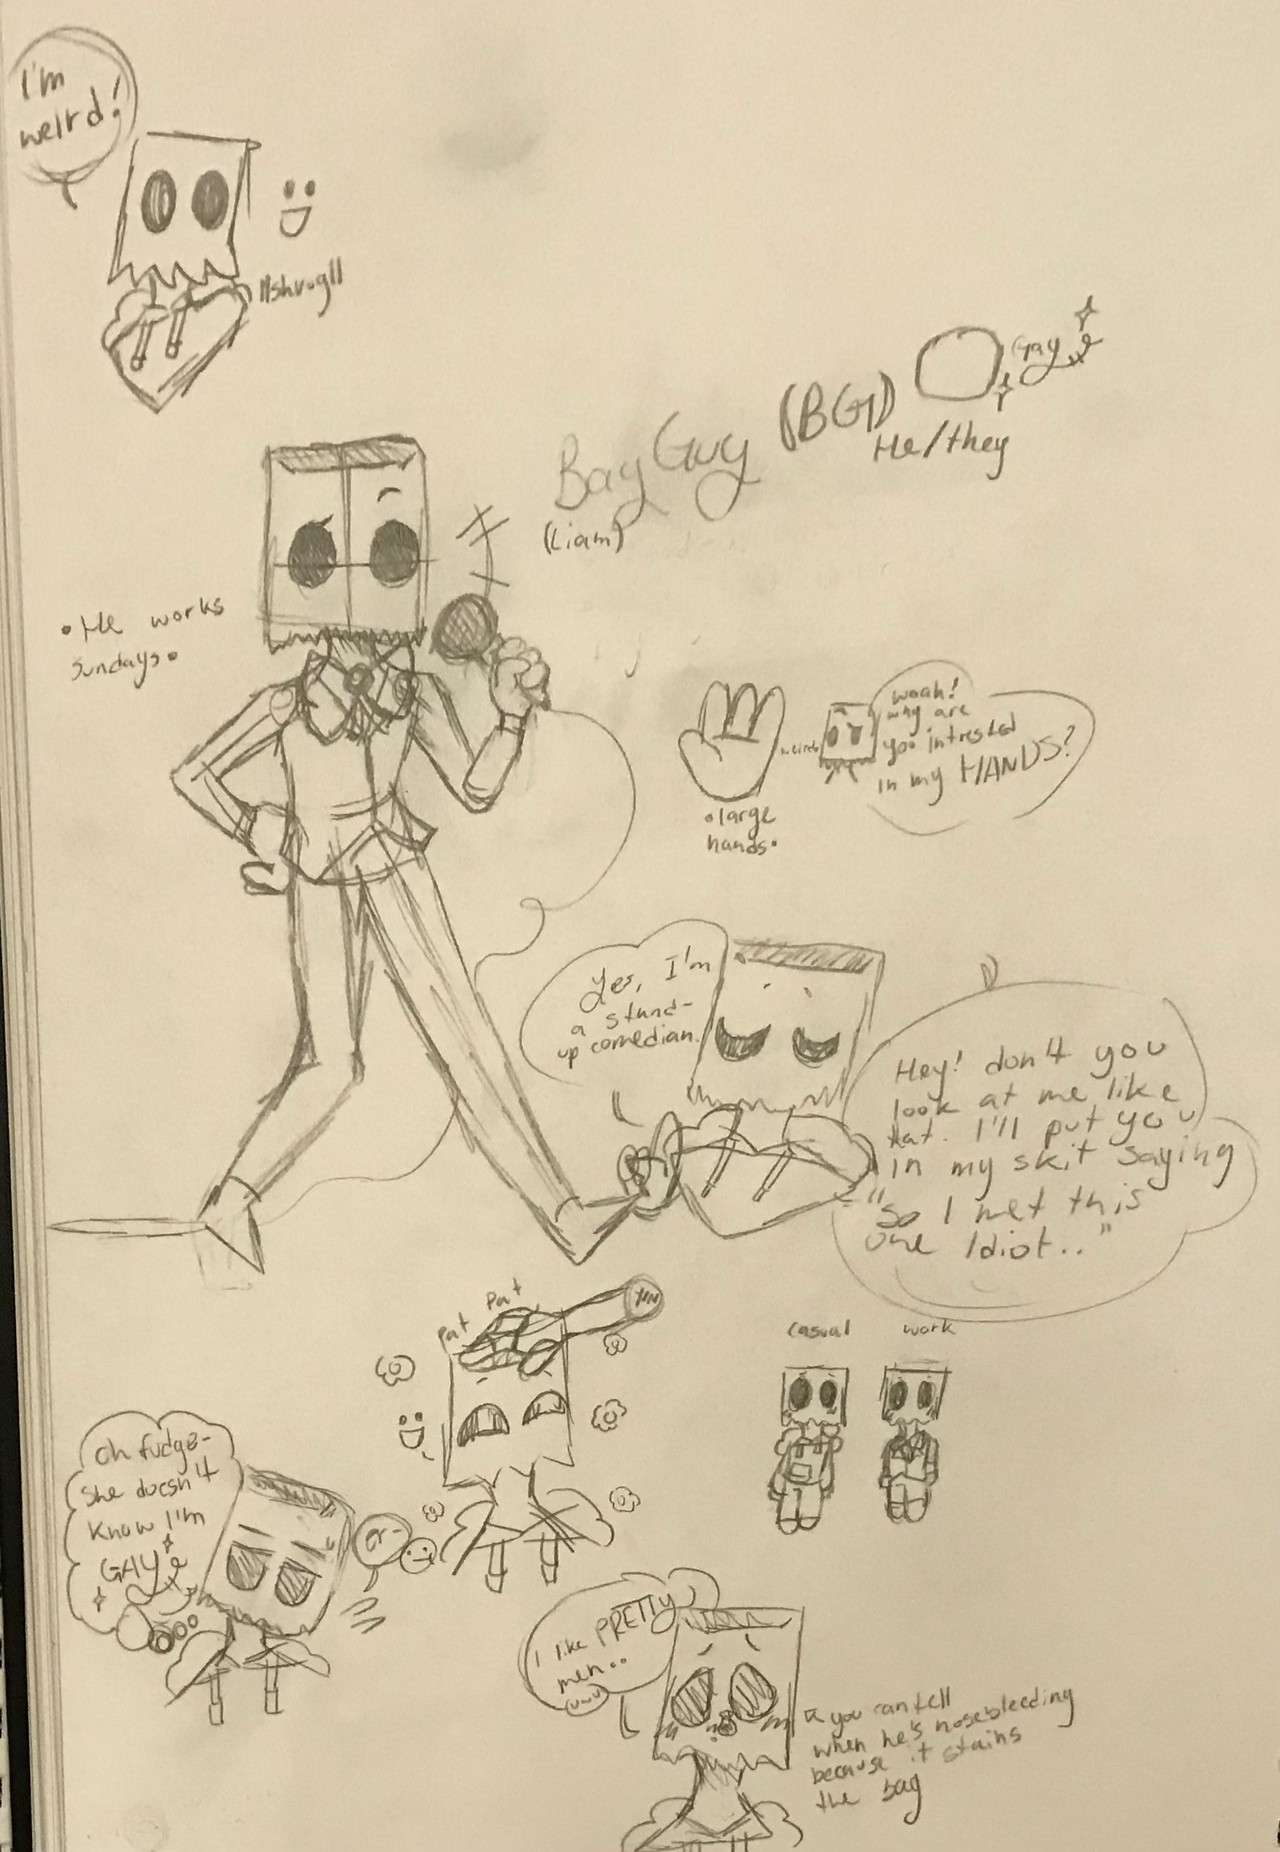 I'm
weird!
||shrug||
Bag Guy (BG)
Gay
He/they
(Liam)
•He works
Sundays•
•large
hands•
woah!
why are
you intrested
in my HANDS?
Yes, I'm
a stand-
up comedian.
Hey! don't you
look at me like
that. I'll put you
in my skit saying
"So I met this
one Idiot.."
Pat Pat
casual work
oh fudge-
she doesn't
know I'm
GAY
er-
I like PRETTY
men..
UwU
you can tell
when he's nosebleeding
because it stains
the bag